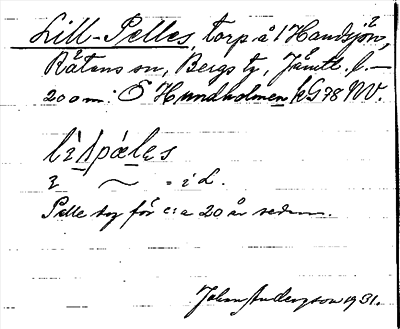 Lill-Pelles, torp å l Handsjön,
Råtans sn, Bergs tg, Jämtl. l. –
200 m Ö Hundholmen kG78 NV.
lìl pæ̀les
2 ~ = i L.
Pelle tog för c:a 20 år sedan.
Johan Anderson 1931.